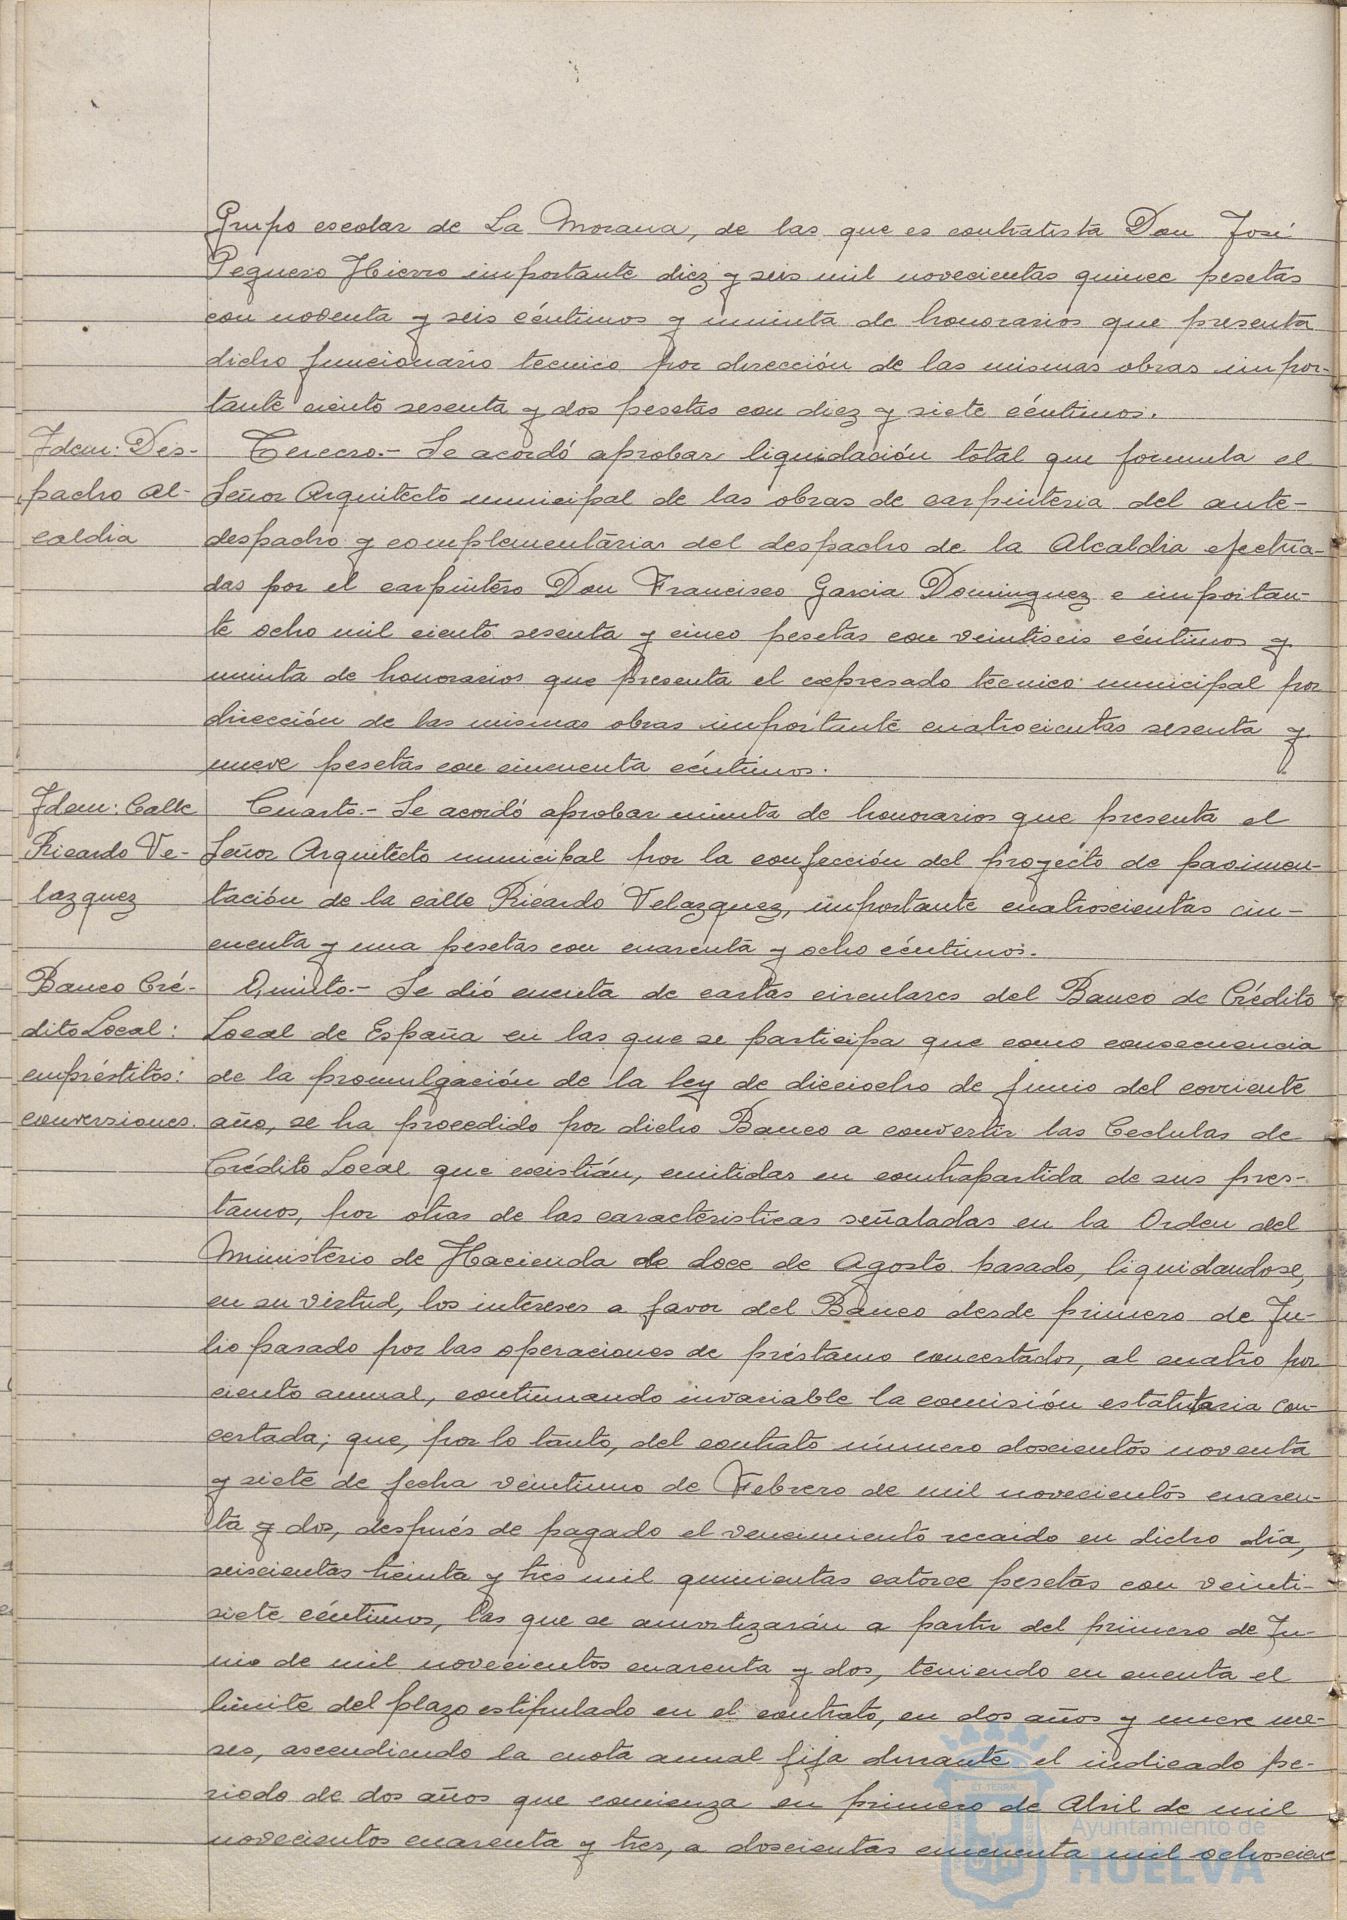 Grupo escolar de La Morana, de las que es contratista Don José
Peguero Hierro importante diez y seis mil novecientas quince pesetas
con noventa y seis céntimos y minuta de honorarios que presenta
dicho funcionario tecnico por dirección de las mismas obras impor-
tante ciento sesenta y dos pesetas con diez y siete céntimos.
Idem: Des-
pacho Al-
caldia
Tercero.- Se acordó aprobar liquidación total que formula el
Señor Arquitecto municipal de las obras de carpinteria del ante-
despacho y complementarias del despacho de la Alcaldia efectua-
das por el carpintero Don Francisco Garcia Dominguez e importan-
te ocho mil ciento sesenta y cinco pesetas con veintiseis céntimos y
minuta de honorarios que presenta el expresado tecnico municipal por
dirección de las mismas obras importante cuatrocientas sesenta y
nueve pesetas con cincuenta céntimos.
Idem: Calle
Ricardo Ve-
lazquez
Cuarto.- Se acordó aprobar minuta de honorarios que presenta el
Señor Arquitecto municipal por la confección del proyecto de pavimen-
tación de la calle Ricardo Velazquez, importante cuatroscientas cin-
cuenta y una pesetas con cuarenta y ocho céntimos.
Banco Cré-
dito Local:
empréstitos:
conversiones.
Quinto.- Se dió cuenta de cartas circulares del Banco de Crédito
Local de España en las que se participa que como consecuencia
de la promulgación de la ley de dieciocho de Junio del corriente
año, se ha procedido por dicho Banco a convertir las Cedulas de
Crédito Local que existián, emitidas en contrapartida de sus pres-
tamos, por otras de las caracteristicas señaladas en la Orden del
Ministerio de Hacienda de doce de Agosto pasado, liquidandose,
en su virtud, los intereses a favor del Banco desde primero de Ju-
lio pasado por las operaciones de préstamo concertados, al cuatro por
ciento annual, continuando invariable la comisión estatutaria con-
certada; que, por lo tanto, del contrato número doscientos noventa
y siete de fecha veintiuno de Febrero de mil novecientos cuaren-
ta y dos, después de pagado el vencimiento recaido en dicho dia,
seiscientas treinta y tres mil quinientas catorce pesetas con veinti-
siete céntimos, las que se amortizarán a partir del primero de Ju-
nio de mil novecientos cuarenta y dos, teniendo en cuenta el
limite del plazo estipulado en el contrato, en dos años y nueve me-
ses, ascendiendo la cuota anual fija durante el indicado pe-
riodo de dos años que comienza en primero de Abril de mil
novecientos cuarenta y tres, a doscientas cincuenta mil ochocien
Ayuntamiento de
HUELVA